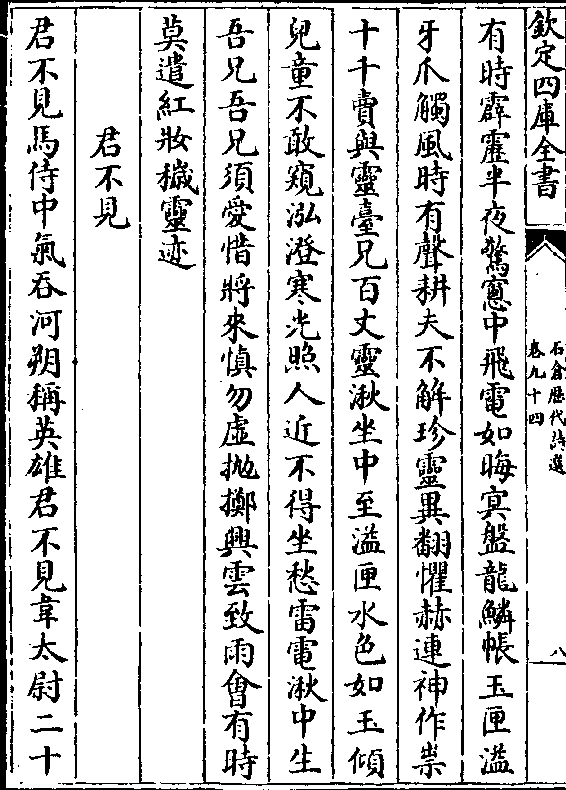 欽定四庫全書
石倉歷代詩選
卷九十四
八
有時霹靂半夜驚窻中飛電如晦㝠盤龍鱗帳玉匣溢
牙爪觸風時有聲耕夫不解珍靈異翻懼赫連神作祟
十千賣與靈臺兄百丈靈湫坐中至溢匣水色如玉傾
兒童不敢窺泓澄寒光照人近不得坐愁雷電湫中生
吾兄吾兄須愛惜將來慎勿虚抛擲興雲致雨會有時
莫遣紅妝穢靈迹
君不見
君不見馬侍中氣吞河朔稱英雄君不見韋太尉二十